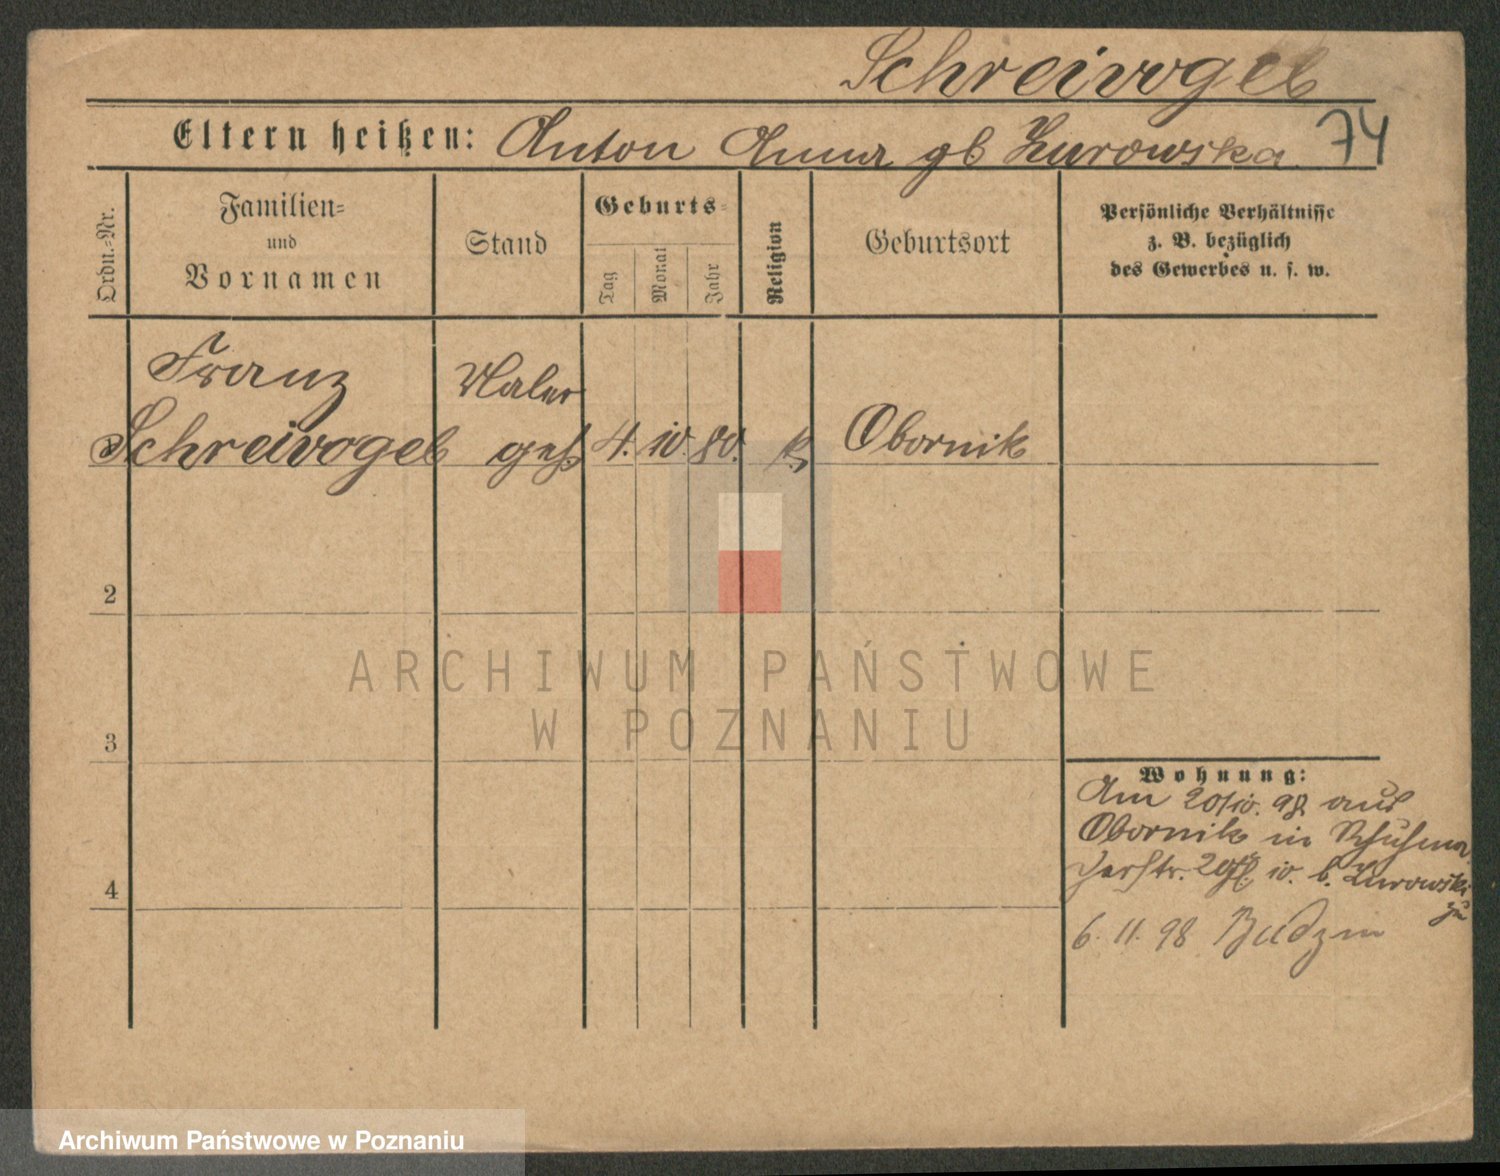 Schreivogel
Eltern heißen: Anton Anna gb Zurowska 74
Ordn.-Nr.
Familien-
und
Vornamen
Stand
Geburts-
Tag
Monat
Jahr
Religion
Geburtsort
Persönliche Verhältnisse
z. B. bezüglich
des Gewerbes u. s. w.
Franz
Schreivogel
Maler
geh
4. 10. 80.
k
Obornik
2
3
4
Wohnung:
Am 20/10. 98 aus
Obornik in Schuhma
cherstr. 20 b. Zurowski
zu
6. 11. 98 Budzin
ARCHIWUM PAŃSTWOWE
W POZNANIU
Archiwum Państwowe w Poznaniu